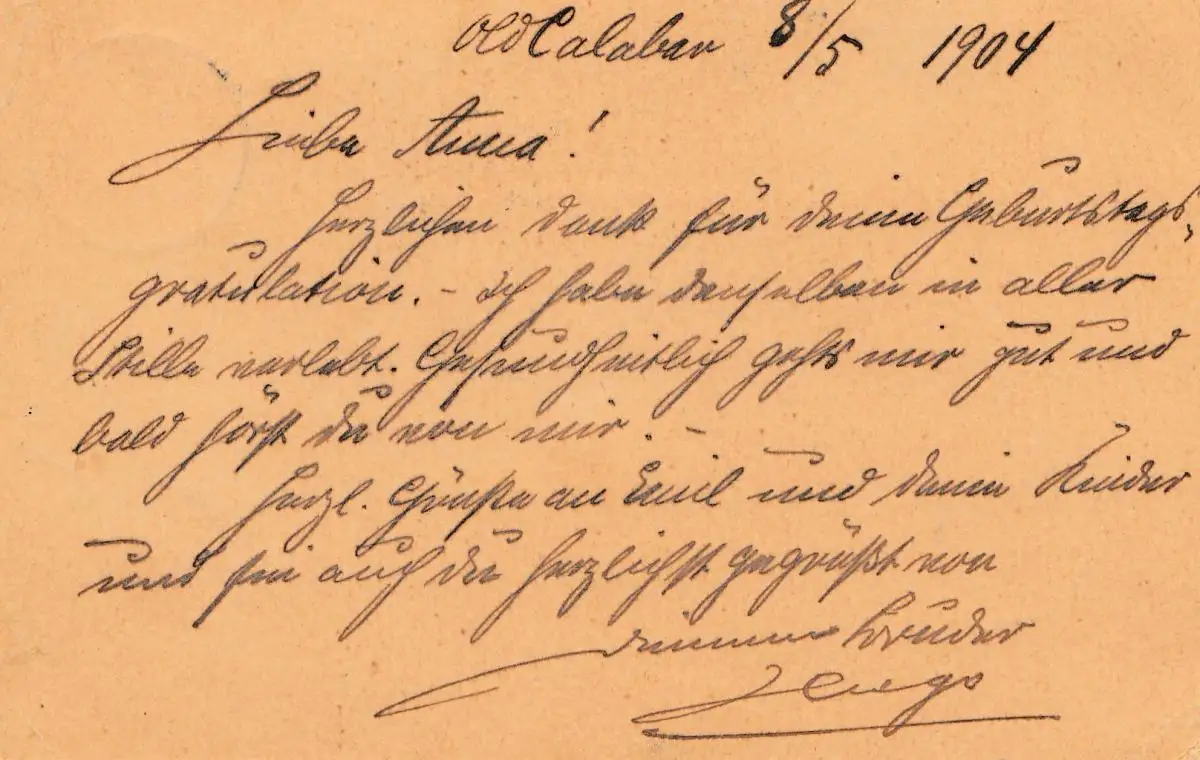 Old Calabar 8/5 1904
Liebe Anna!
Herzlichen Dank für deine Geburtstags-
gratulation. - Ich habe denselben in aller
Stille verlebt. Gesundheitlich gehts mir gut und
bald hörst du von mir. -
Herzl. Grüße an Emil und deine Kinder
und sei auch du herzlichst gegrüßt von
deinem Bruder
Hugo